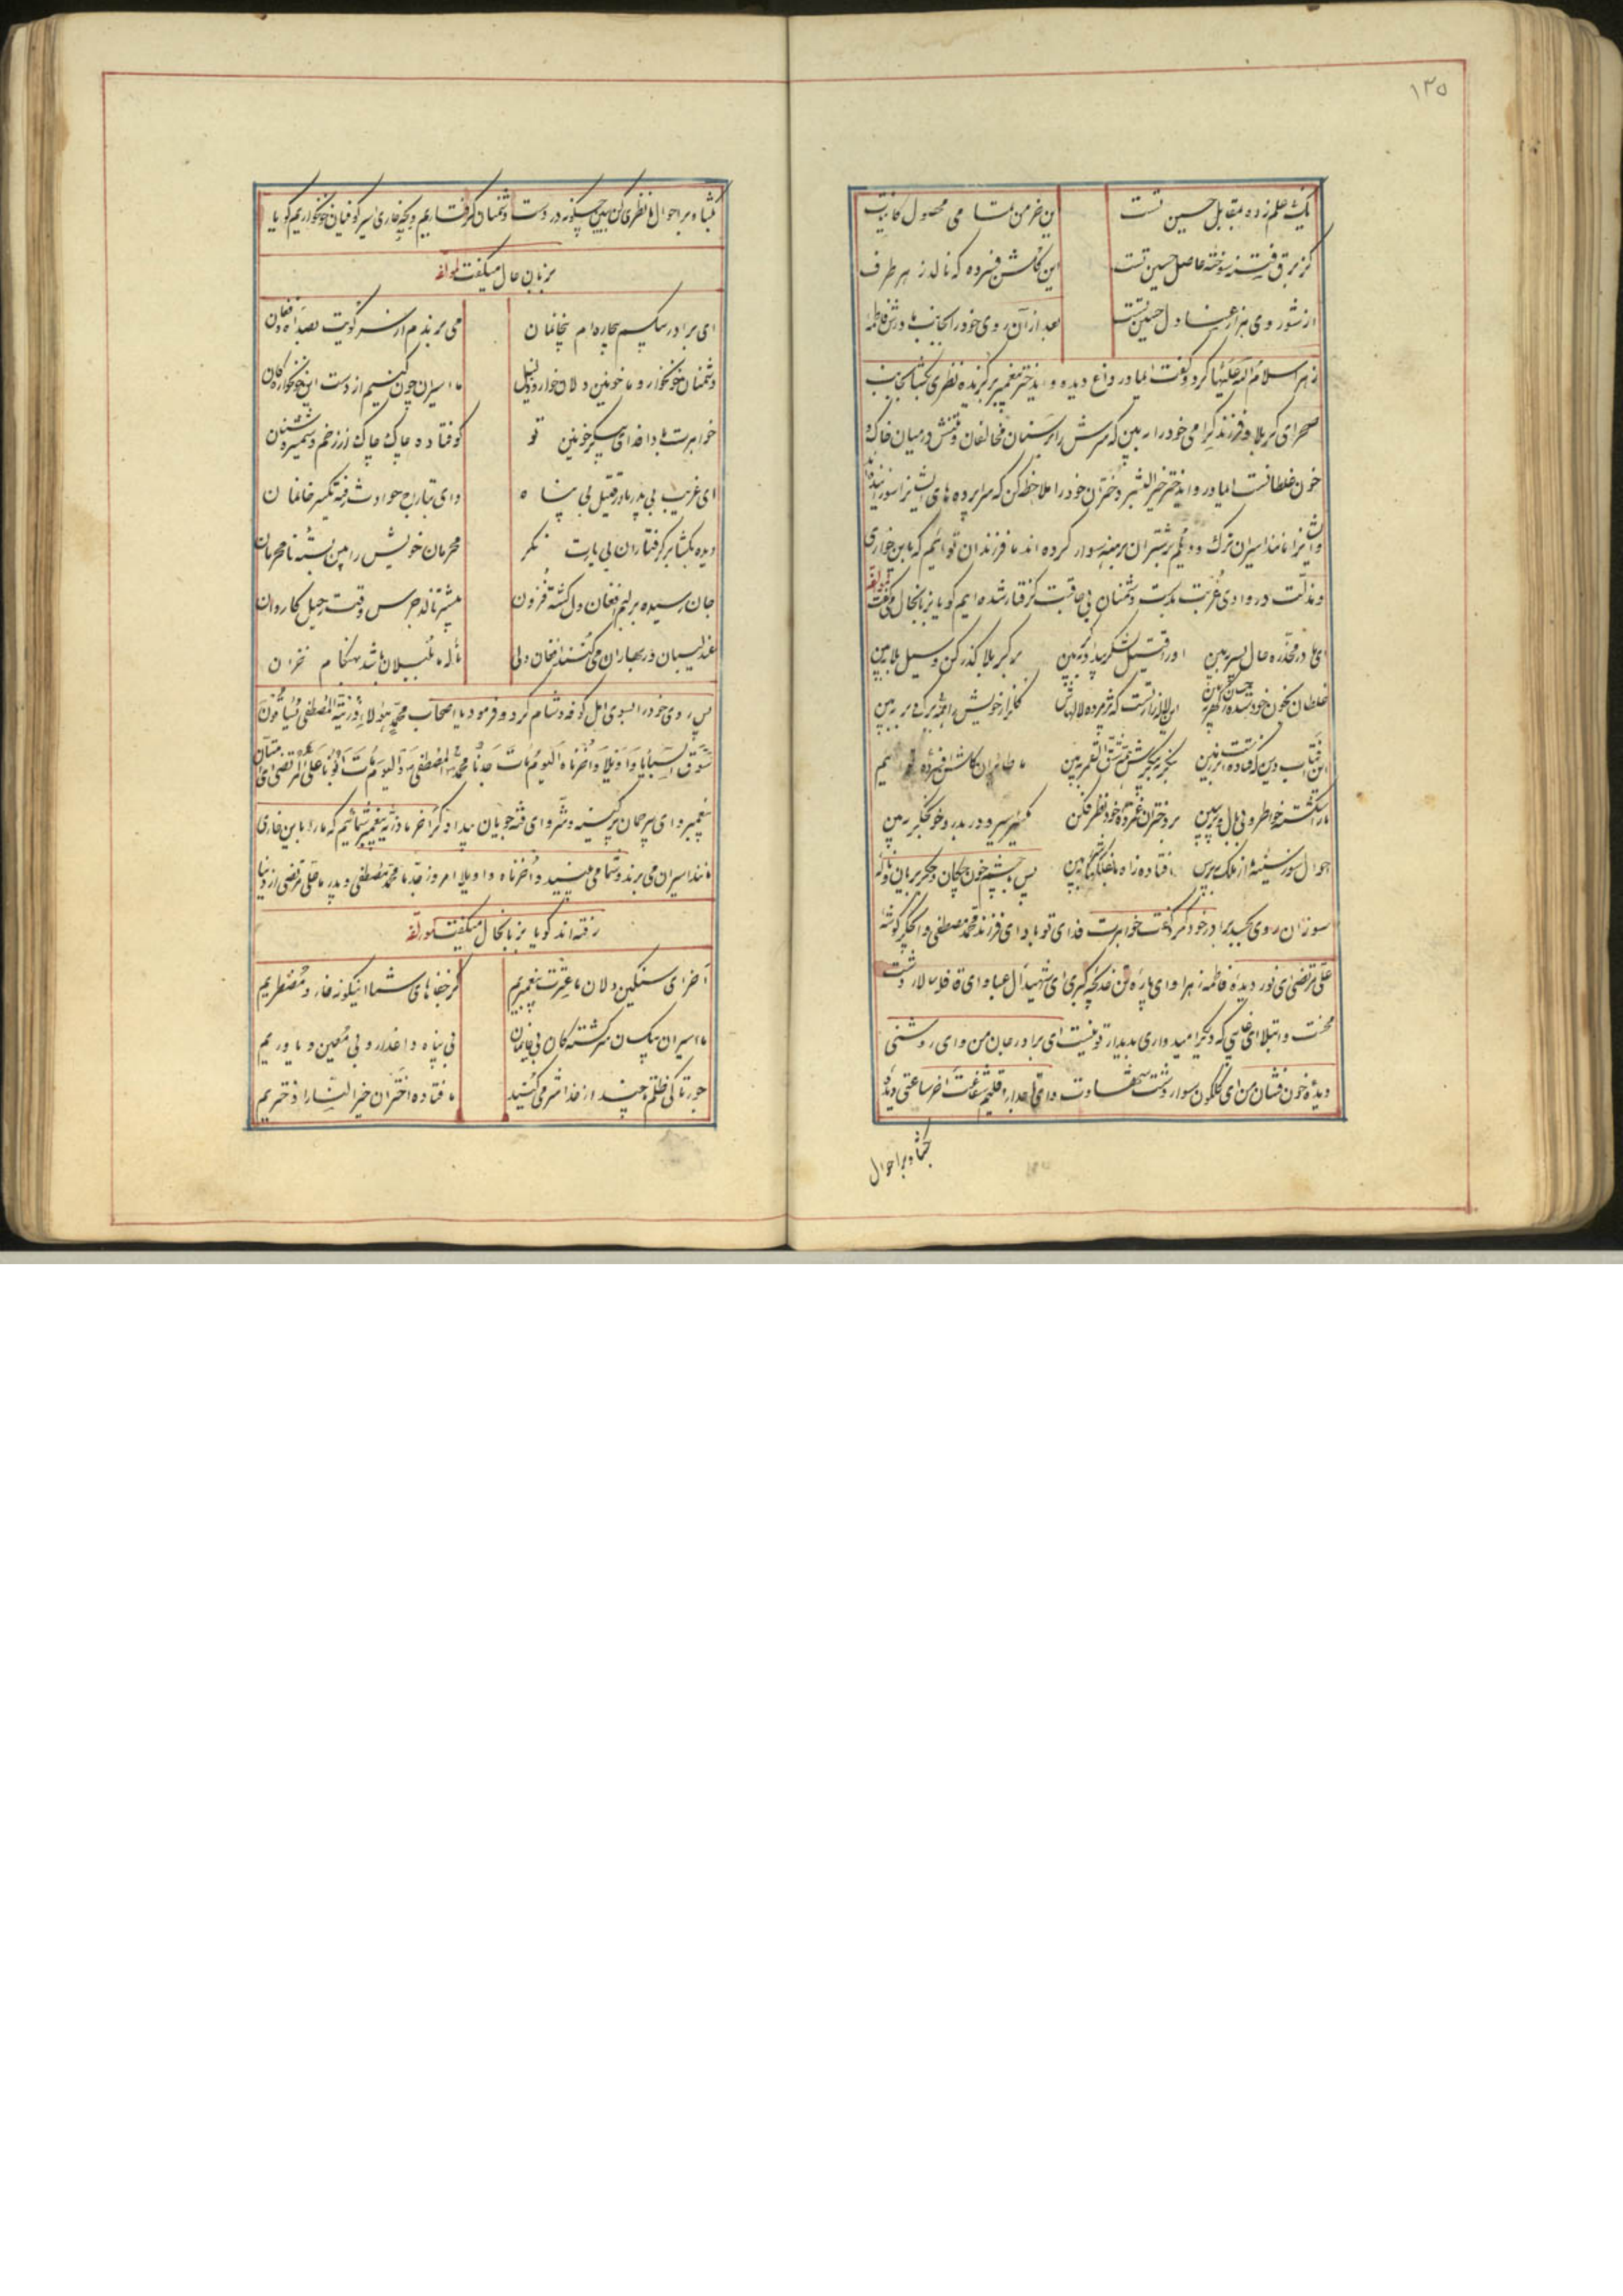 ۱۳۵
یک علم زده مقابل حسین تست این خرمن تمامی محصول
کز برق فتنه سوخته حاصل حسین تست این گلشن فسرده که نالد ز هر طرف
از شور وی هزار عنادل حسین تست بعد از آن روی خود را بجانب مادرش فاطمه
زهرا سلام الله علیها کرد و گفت ایمادر داغ دیده و ایدختر پیغمبر برگزیده نظری بگشا بجانب
صحرای کربلا و فرزند گرامی خود را ببین که سرش را بر سنان مخالفان و تنش در میان خاک و
خون غلطانست ایمادر و ایدختر خیر البشر دختران خود را ملاحظه کن که سراپرده های ایشانرا سوزانیدند
و ایشانرا مانند اسیران ترک و دیلم بر شتران برهنه سوار کرده اند ما فرزندان توایم که باین خواری
و مذلت در وادی غربت بدست دشمنان بی عاقبت گرفتار شده ایم گویا بزبانحال میگفت لمؤلفه
ای مادر مخدره حال پسر ببین او را قتیل لشکر بیدادگر ببین بر کربلا گذر کن و سیل بلا ببین
غلطان بخون خود شده این لاله زار تست که پژمرده لالهاش گلزار خویش را همه بی برگ و بر ببین
این آفتاب دین که فتاده است بر زمین بنگر به پیکرش شق القمر ببین ما طایران گلشن افسرده توییم
ما را شکسته خواطر و بی بال و پر ببین بر دختران غمزده خود نظر فکن هم سیر در بدر و خونجگر ببین
احوال سوز سینه ما از ملک بپرس افتاده زاه ما بفلک ببین پس با چشم خون چکان و جگر بریان و ناله
سوزان روی بجسد برادر خود کرد گفت خواهرت فدای تو باد ای فرزند محمد مصطفی و ای جگر گوشه
علی مرتضی ای نور دیده فاطمه زهرا و ای پاره تن خدیجه کبری ای شهید آل عبا و ای قافله سالار دشت
محنت و ابتلا ای غایبی که دیگر امیدواری بدیدار تو نیست ای برادر جان من و ای روشنی
دیده خون فشان من ای گلگون سوار دشت شهادت و ای تاجدار اقلیم شفاعت آخر ساعتی دیده
بگشا و بر احوال
بگشا و بر احوال ما نظری کن ببین چگونه در دست دشمنان گرفتاریم و بچه خواری اسیر کوفیان خونخواریم گویا
بزبان حال میگفت لمؤلفه
ای برادر بیکسم بیچاره ام بیخانمان می برندم از سر کویت بصد آه و فغان
دشمنان خونخوار و ما خونین دلان خوار و ذلیل ما اسیران چون کنیم از دست این خونخوارگان
خواهرت بادا فدای پیکر خونین تو کوفتاده چاک چاک از زخم شمشیر و سنان
ای غریب بی پدر مادر قتیل بی پناه وای بتاراج حوادث رفته یکسر خانمان
دیده بگشا بر گرفتاران بی یارت نگر محرمان خویش را بین بسته نامحرمان
جان رسیده بر لبم افغان دل گشته فزون بیشتر نالد جرس وقت رحیل کاروان
عندلیبان در بهاران می کنند افغان ولی ناله ما بلبلان باشد بهنگام خزان
پس روی خود را بسوی اهل کوفه و شام کرد و فرمود یا اصحاب محمد هؤلاء ذریة المصطفی یساقون
سوق السبایا وا ویلا وا حزناه الیوم مات جدنا محمد المصطفی و الیوم مات ابونا علی المرتضی ای امتان
پیغمبر و ای بیرحمان پر کینه و شر و ای فتنه جویان بیدادگر آخر ما ذریه پیغمبر شمائیم که ما را باین خواری
مانند اسیران می برند و شما می بینید وا حزناه وا ویلا امروز جد ما محمد مصطفی و پدر ما علی مرتضی از دنیا
رفته اند گویا بزبانحال میگفت لمؤلفه
آخر ای سنگین دلان ما عترت پیغمبریم کز جفاهای شما اینگونه خوار و مضطریم
ما اسیران بیکسان سرگشتگان بی خانمان بی پناه و اغدار و بی معین و یاوریم
جور تا کی ظلم چند از خدا شرمی کنید ما فتاده اختران خیر النسا را دختریم